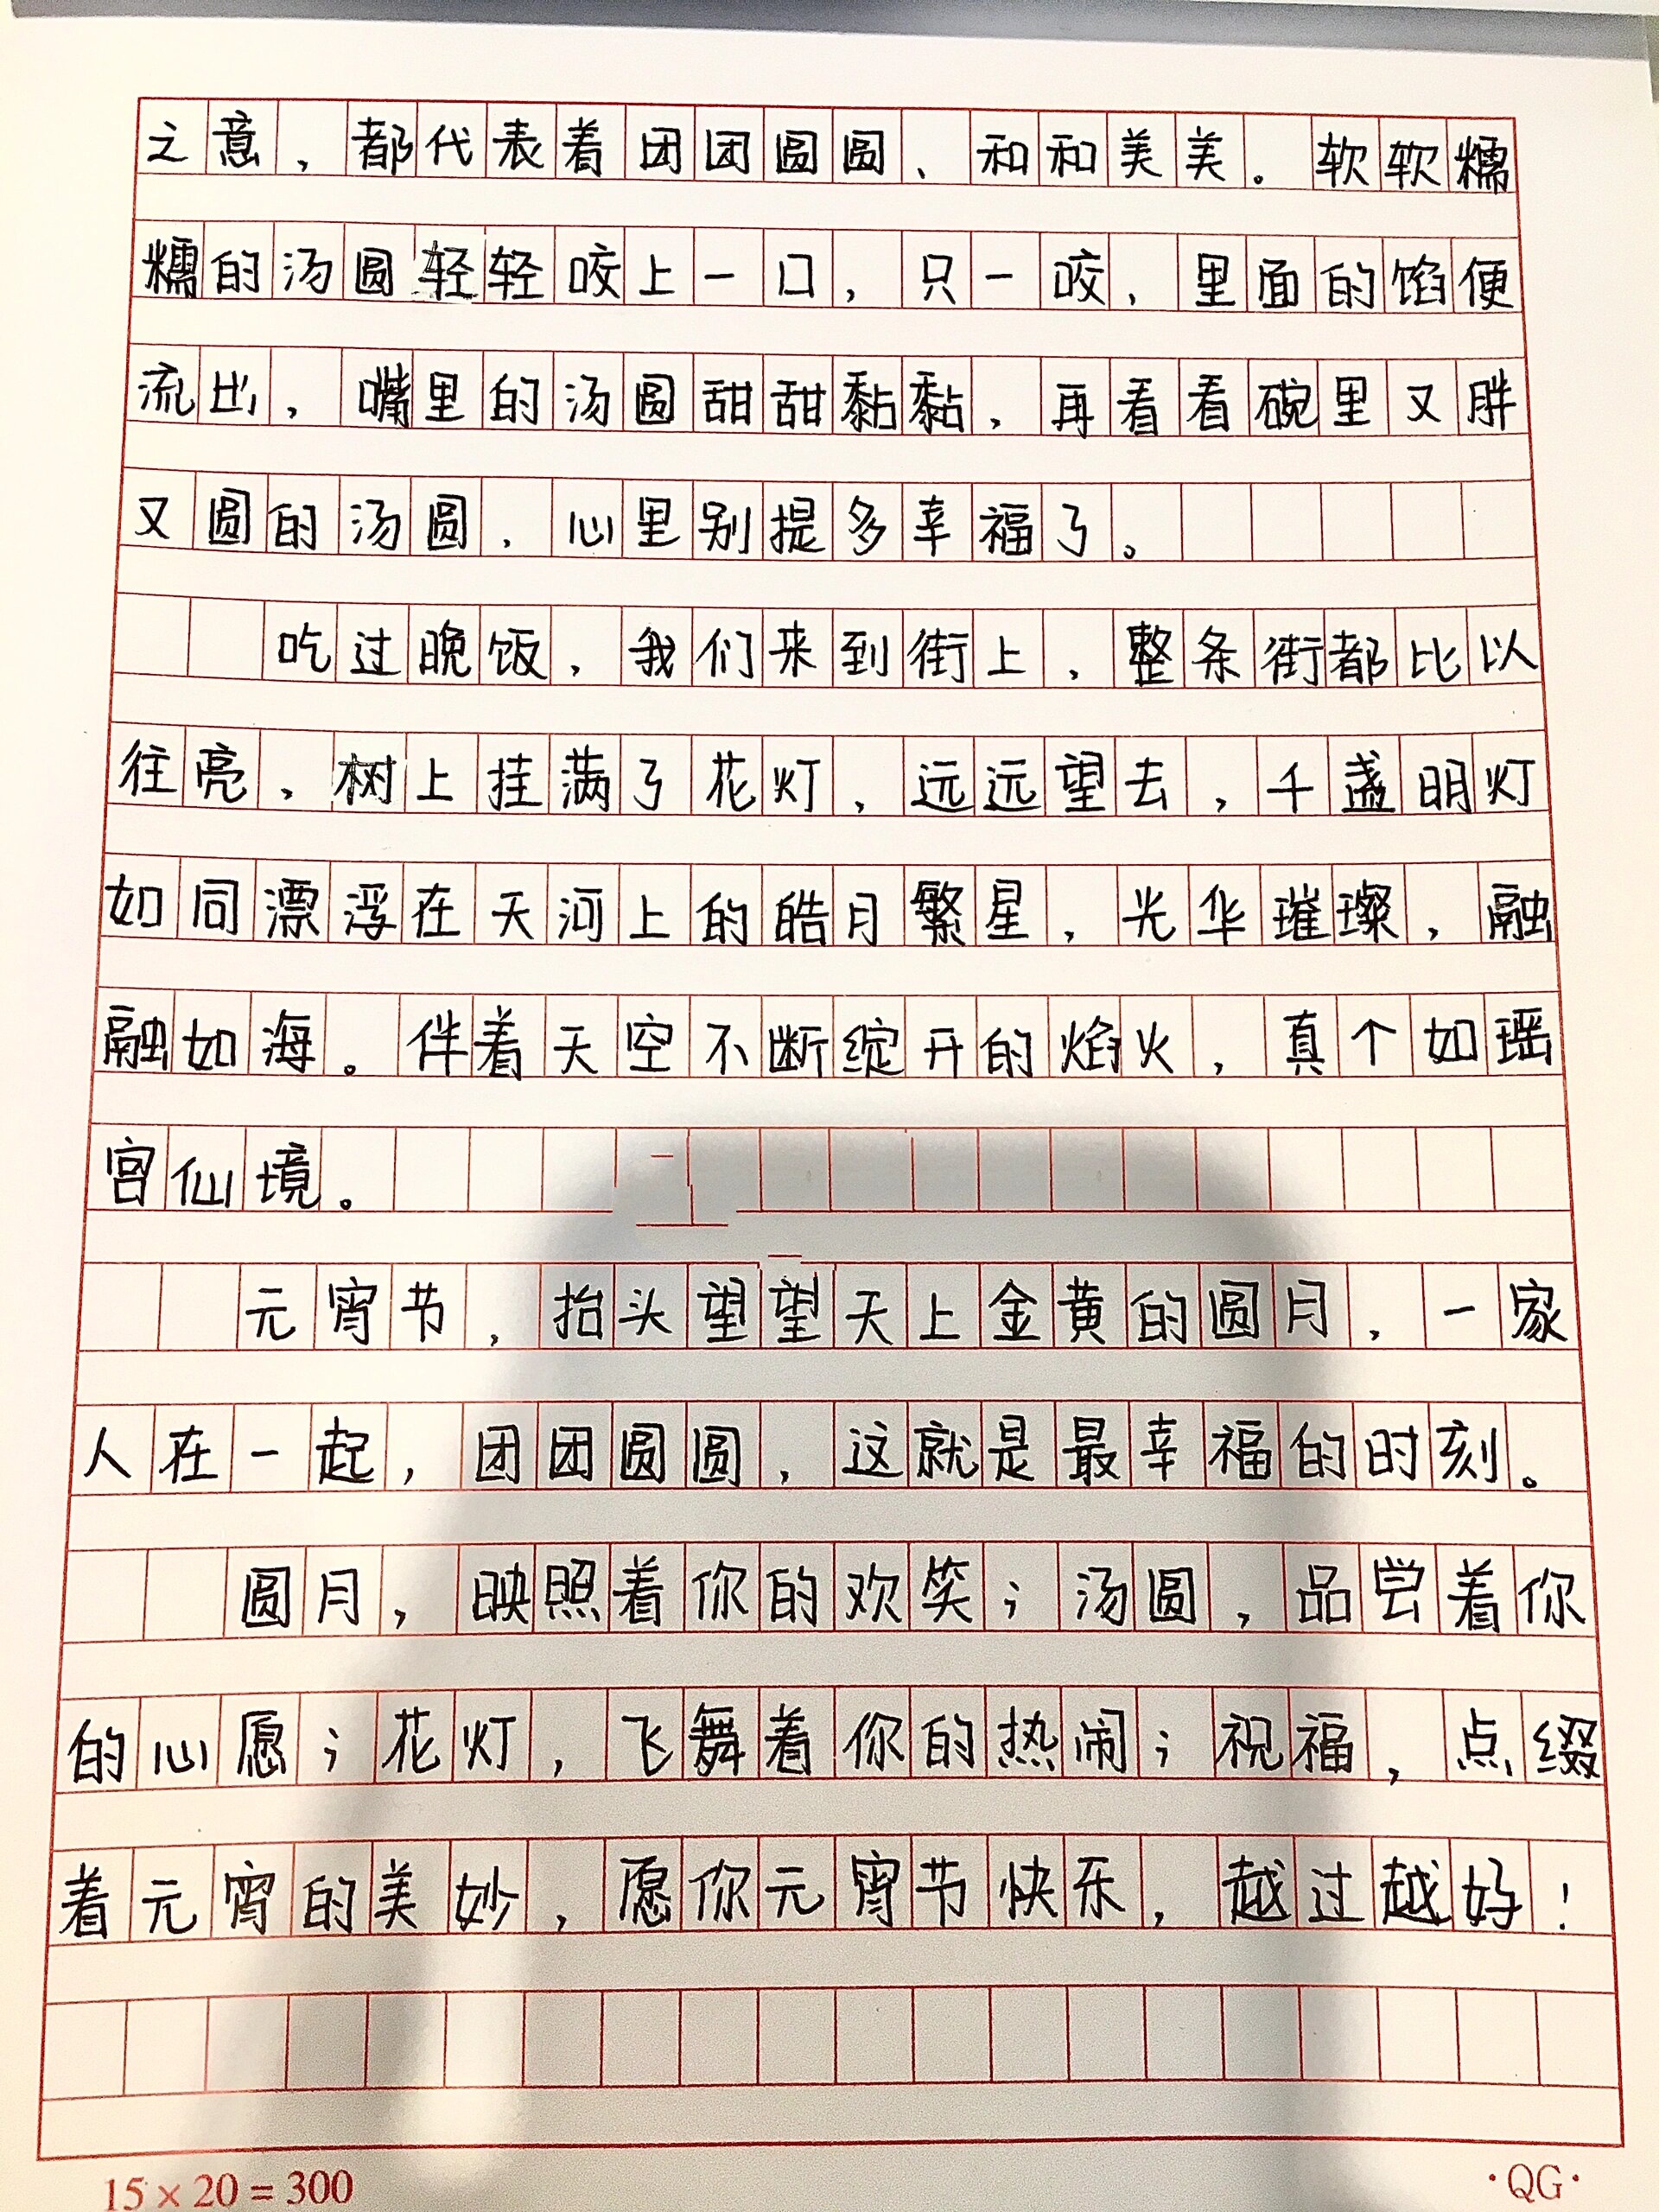 之意，都代表着团团圆圆、和和美美。软软糯
糯的汤圆轻轻咬上一口，只一咬，里面的馅便
流出，嘴里的汤圆甜甜黏黏，再看看碗里又胖
又圆的汤圆，心里别提多幸福了。
吃过晚饭，我们来到街上，整条街都比以
往亮，树上挂满了花灯，远远望去，千盏明灯
如同漂浮在天河上的皓月繁星，光华璀璨，融
融如海。伴着天空不断绽开的焰火，真个如瑶
宫仙境。
元宵节，抬头望望天上金黄的圆月，一家
人在一起，团团圆圆，这就是最幸福的时刻。
圆月，映照着你的欢笑；汤圆，品尝着你
的心愿；花灯，飞舞着你的热闹；祝福，点缀
着元宵的美妙，愿你元宵节快乐，越过越好！
15×20=300
·QG·